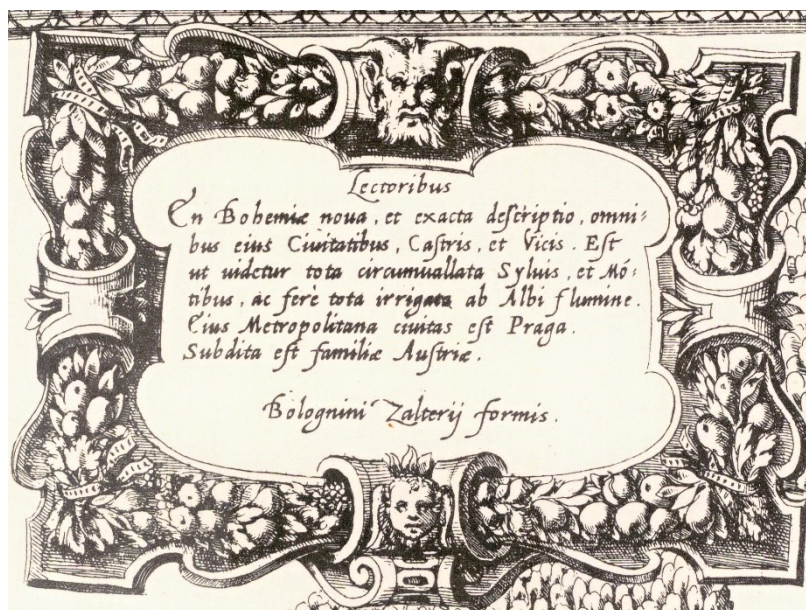 Lectoribus
En Bohemiæ noua, et exacta deſcriptio, omni⸗
bus eius Ciuitatibus, Caſtris, et Vicis. Eſt
ut uidetur tota circumuallata Syluis, et Mó⸗
tibus, ac ferè tota irrigata ab Albi flumine.
Eius Metropolitana ciuitas eſt Praga.
Subdita eſt familiæ Auſtriæ.
Bolognini Zalterij formis.